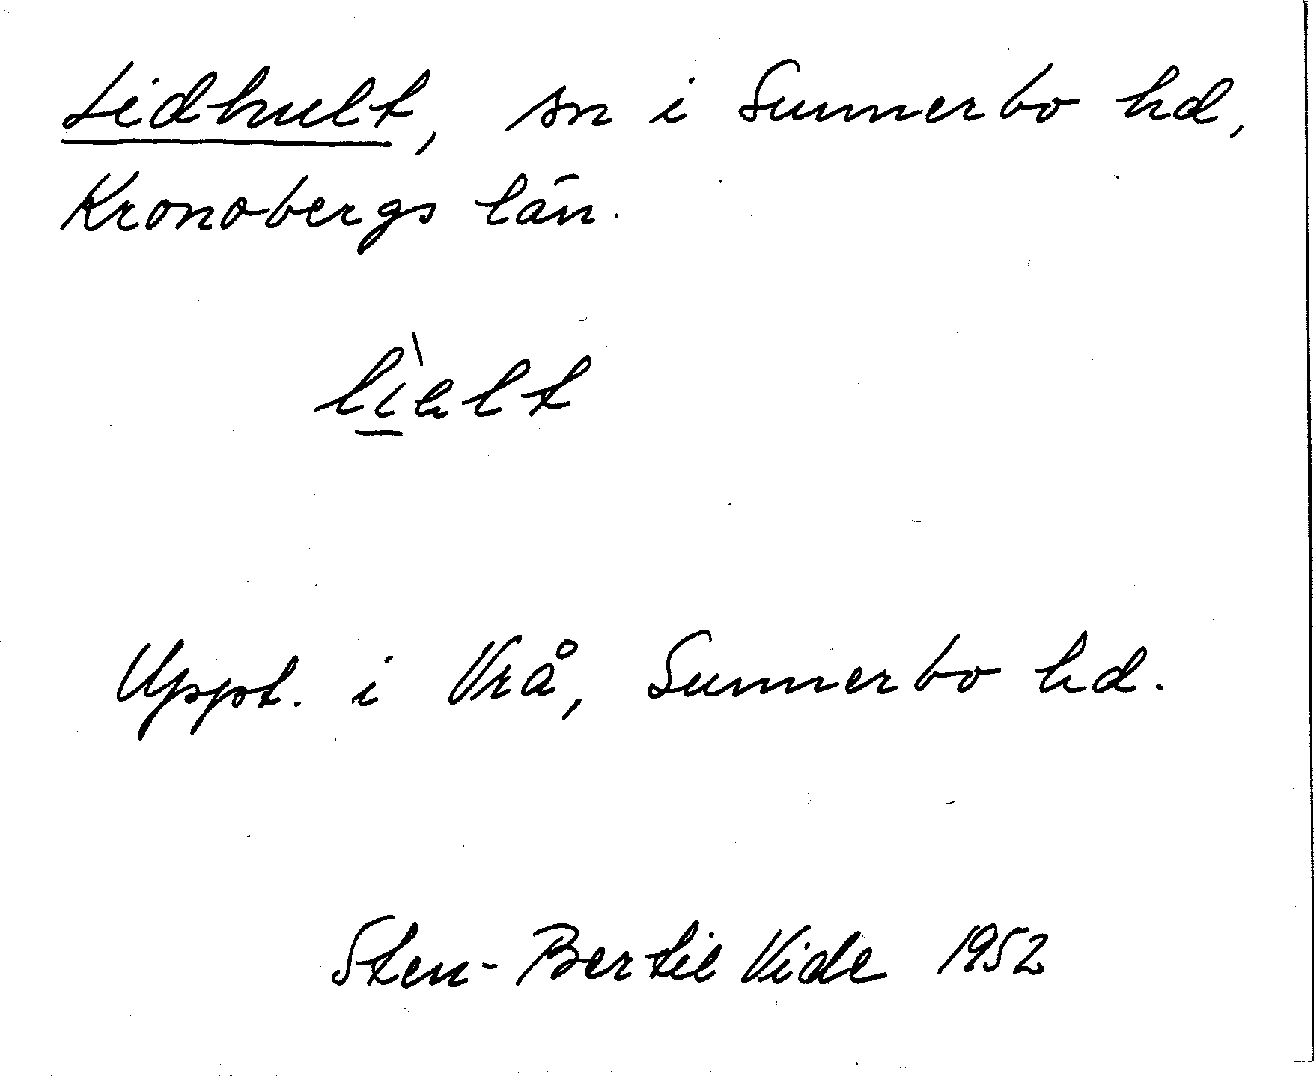 Lidhult, sn i Sunnerbo hd,
Kronobergs län.
Uppt. i Vrå, Sunnerbo hd.
Sten-Bertil Vide 1952